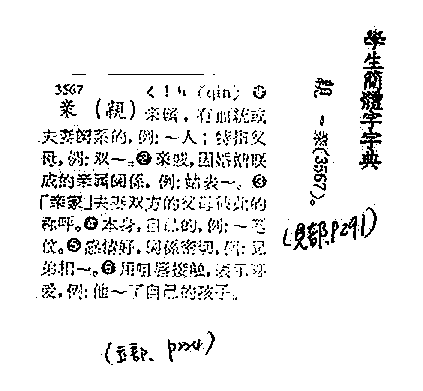 3567 ㄑㄧㄣ (qīn) ❶
亲（親） 亲族，有血統或
夫妻関系的，例：～人；特指父
母，例：双～。❷亲戚，因婚姻联
成的亲属関係，例：姑表～。❸
「亲家」夫妻双方的父母彼此的
称呼。❹本身，自己的，例：～笔
❺感情好，関係密切，例：兄
弟相～。❻用嘴唇接触，表示
爱，例：他～了自己的孩子。
(立部、p224)
學生簡體字字典
親 －亲(3567)。
(見部、p291)